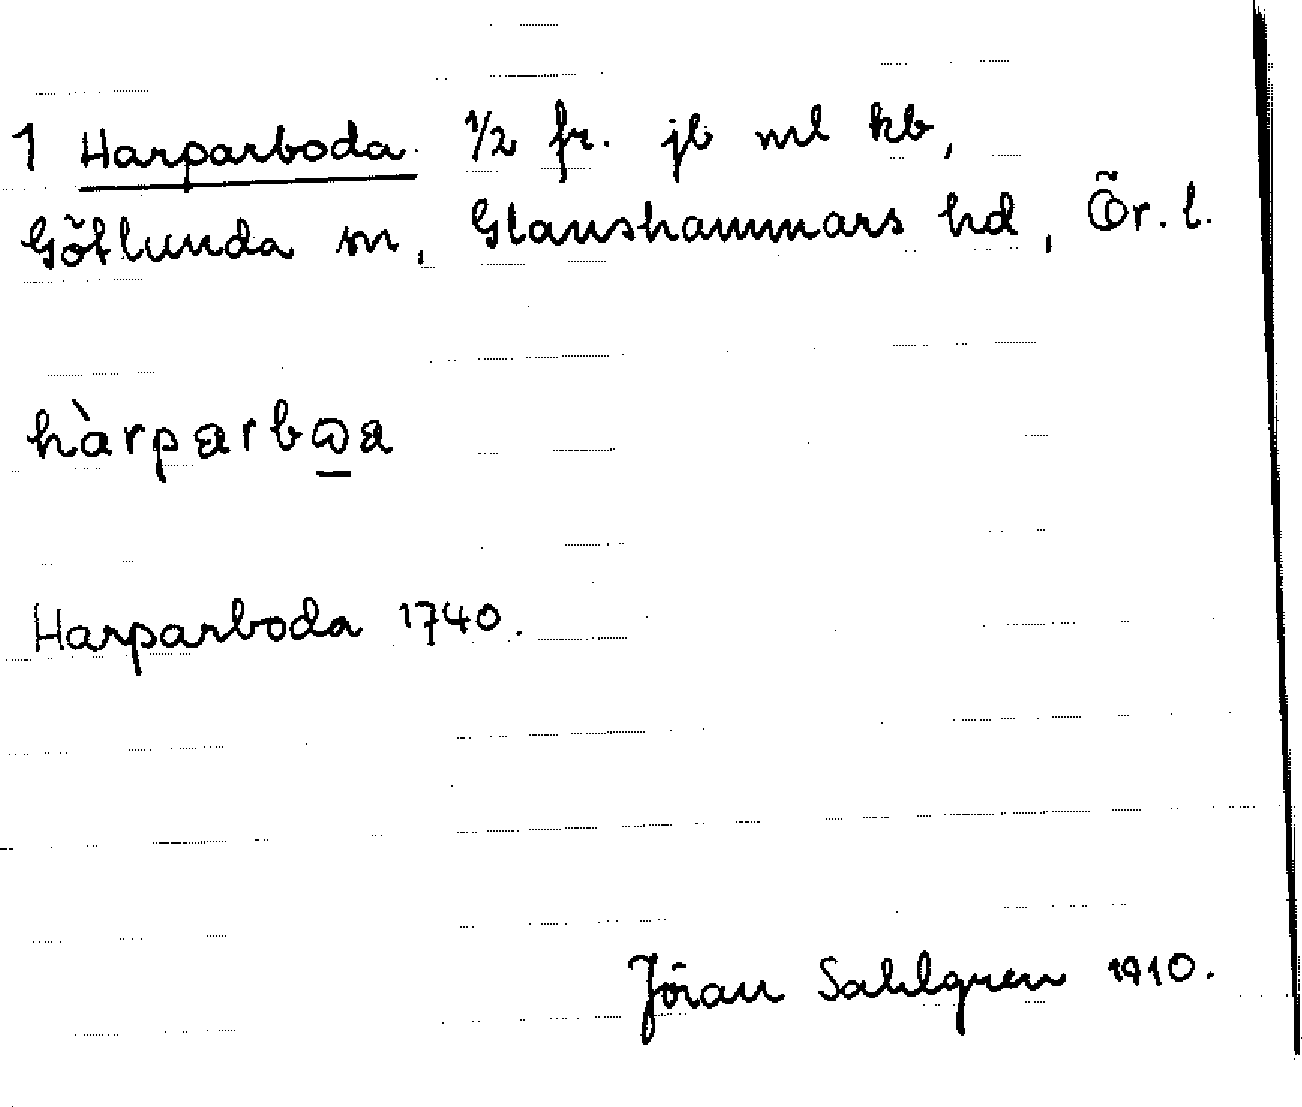 1 Harparboda 1/2 fr. jb ml kb,
Götlunda sn, Glanshammars hd, Ör. l.
hàrparbωa
Harparboda 1740.
Jöran Sahlgren 1910.